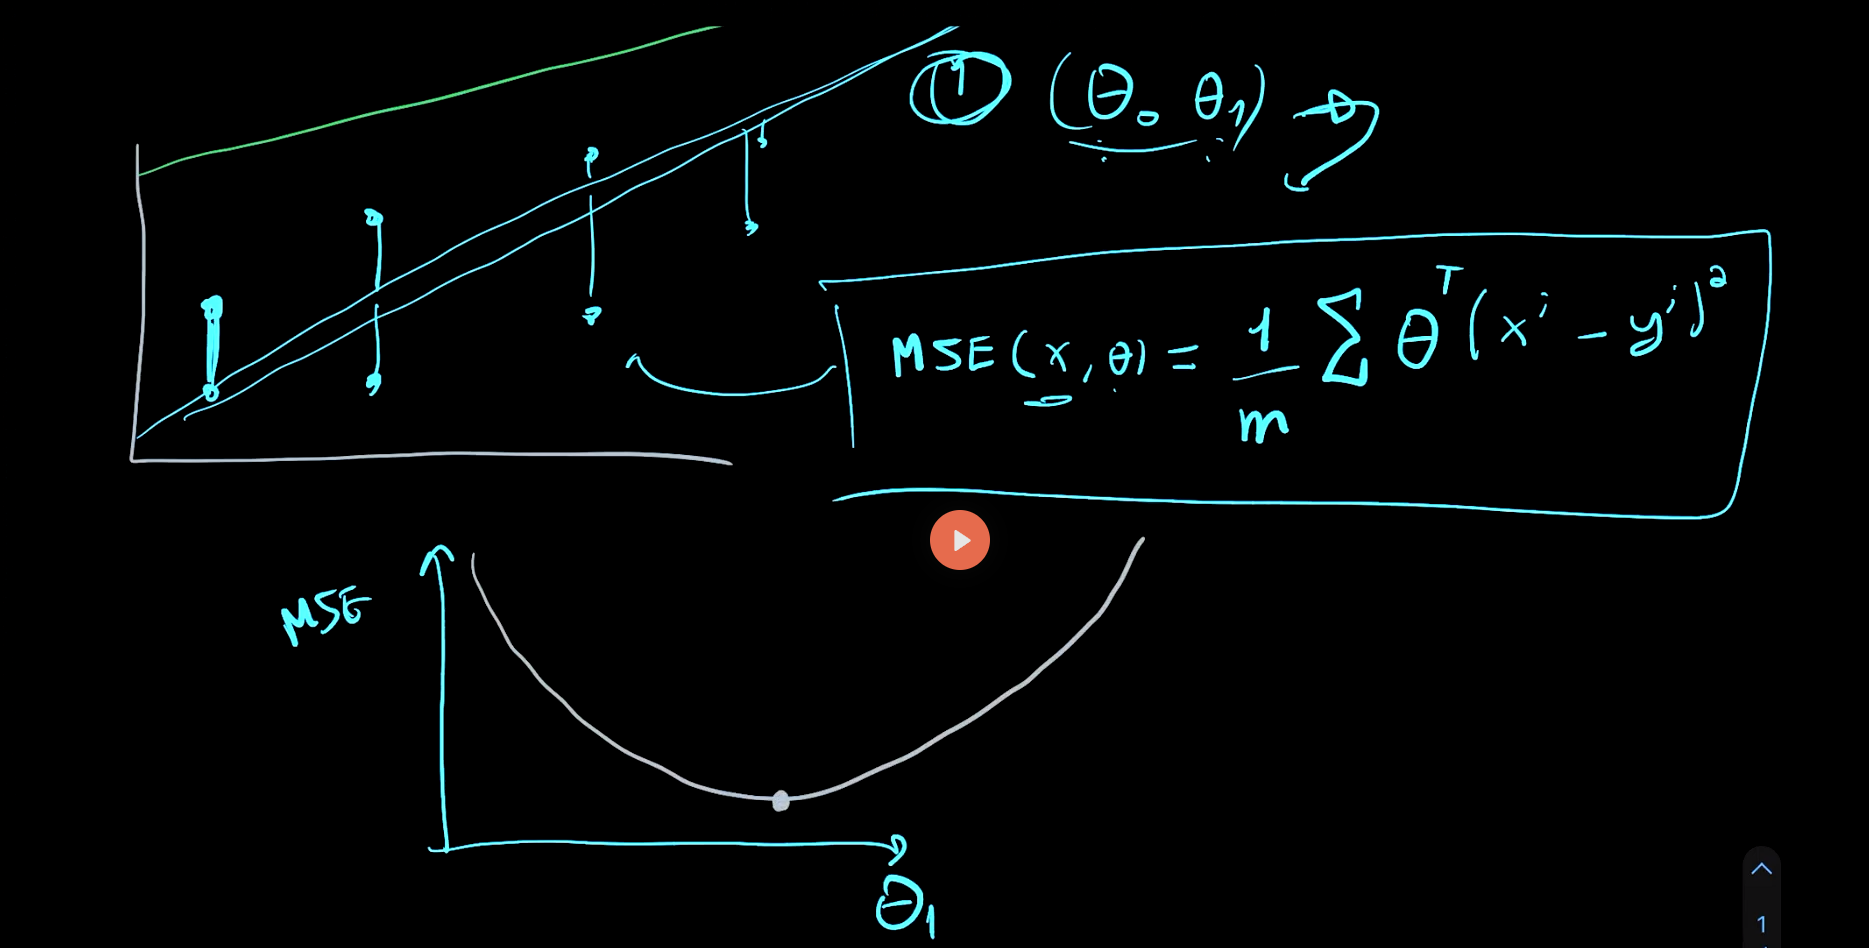 ① (θ₀ θ₁)
MSE(x, θ) = 1/m Σ θᵀ(xⁱ - yⁱ)²
MSE
θ₁
1